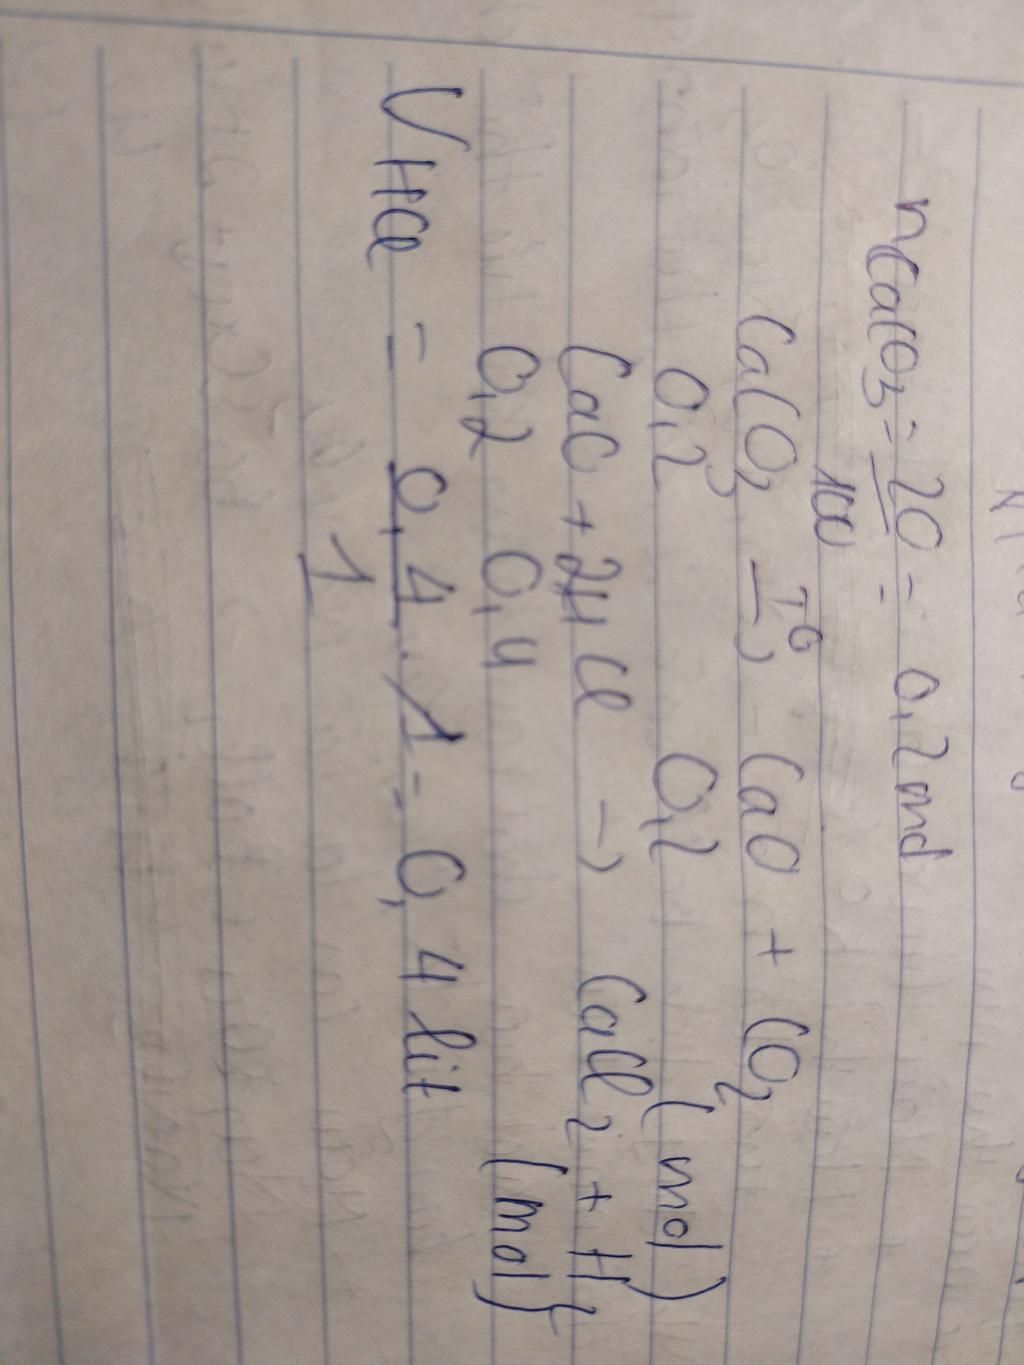 nCaCO3 = 20 = 0,2 mol
100
CaCO3 T° → CaO + CO2
0,2 0,2 (mol)
CaO + 2HCl → CaCl2 + H2
0,2 0,4 (mol)
VHCl = 0,4 . 1 = 0,4 lit
1